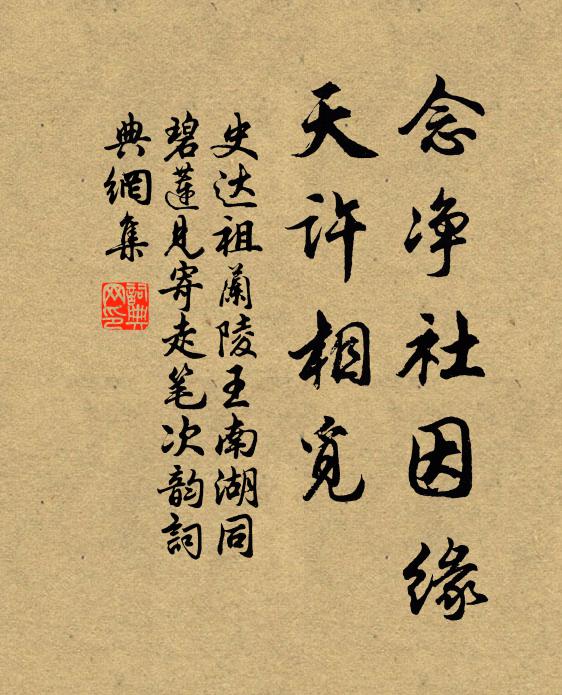 念净社因缘
天许相觅
史达祖蘭陵王南湖同
碧蓮见寄走笔次韵詞
典網集
詞典网印